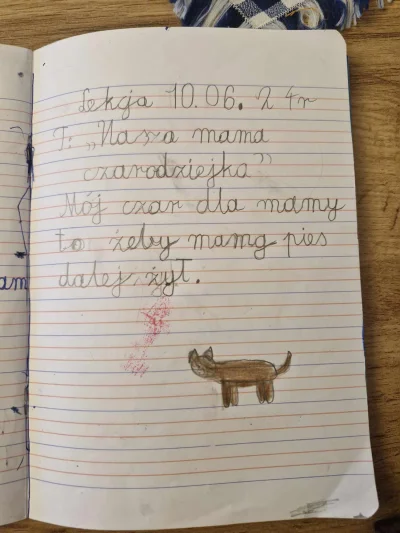 Lekcja 10.06.24r
T: „Nasza mama
czarodziejka”
Mój czar dla mamy
to żeby mamy pies
dalej żył.
am